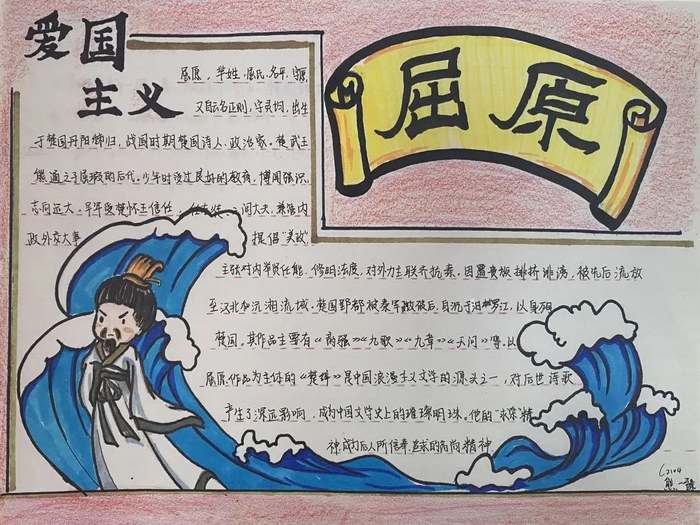 爱国
主义
屈原
屈原，芈姓，屈氏，名平，字原，
又自云名正则，字灵均，出生
于楚国丹阳秭归，战国时期楚国诗人、政治家。楚武王
熊通之子屈瑕的后代。少年时受过良好的教育，博闻强识，
志向远大。早年受楚怀王信任，任左徒、三闾大夫，兼管内
政外交大事 提倡“美政”
主张对内举贤任能，修明法度，对外力主联齐抗秦。因遭贵族排挤诽谤，被先后流放
至汉北和沅湘流域。楚国郢都被秦军攻破后，自沉于汨罗江，以身殉
楚国。其作品主要有《离骚》《九歌》《九章》《天问》等。以
屈原作品为主体的《楚辞》是中国浪漫主义文学的源头之一，对后世诗歌
产生了深远影响，成为中国文学史上的璀璨明珠。他的“求索”精
神，成为后人所信奉、追求的高尚精神
C2104